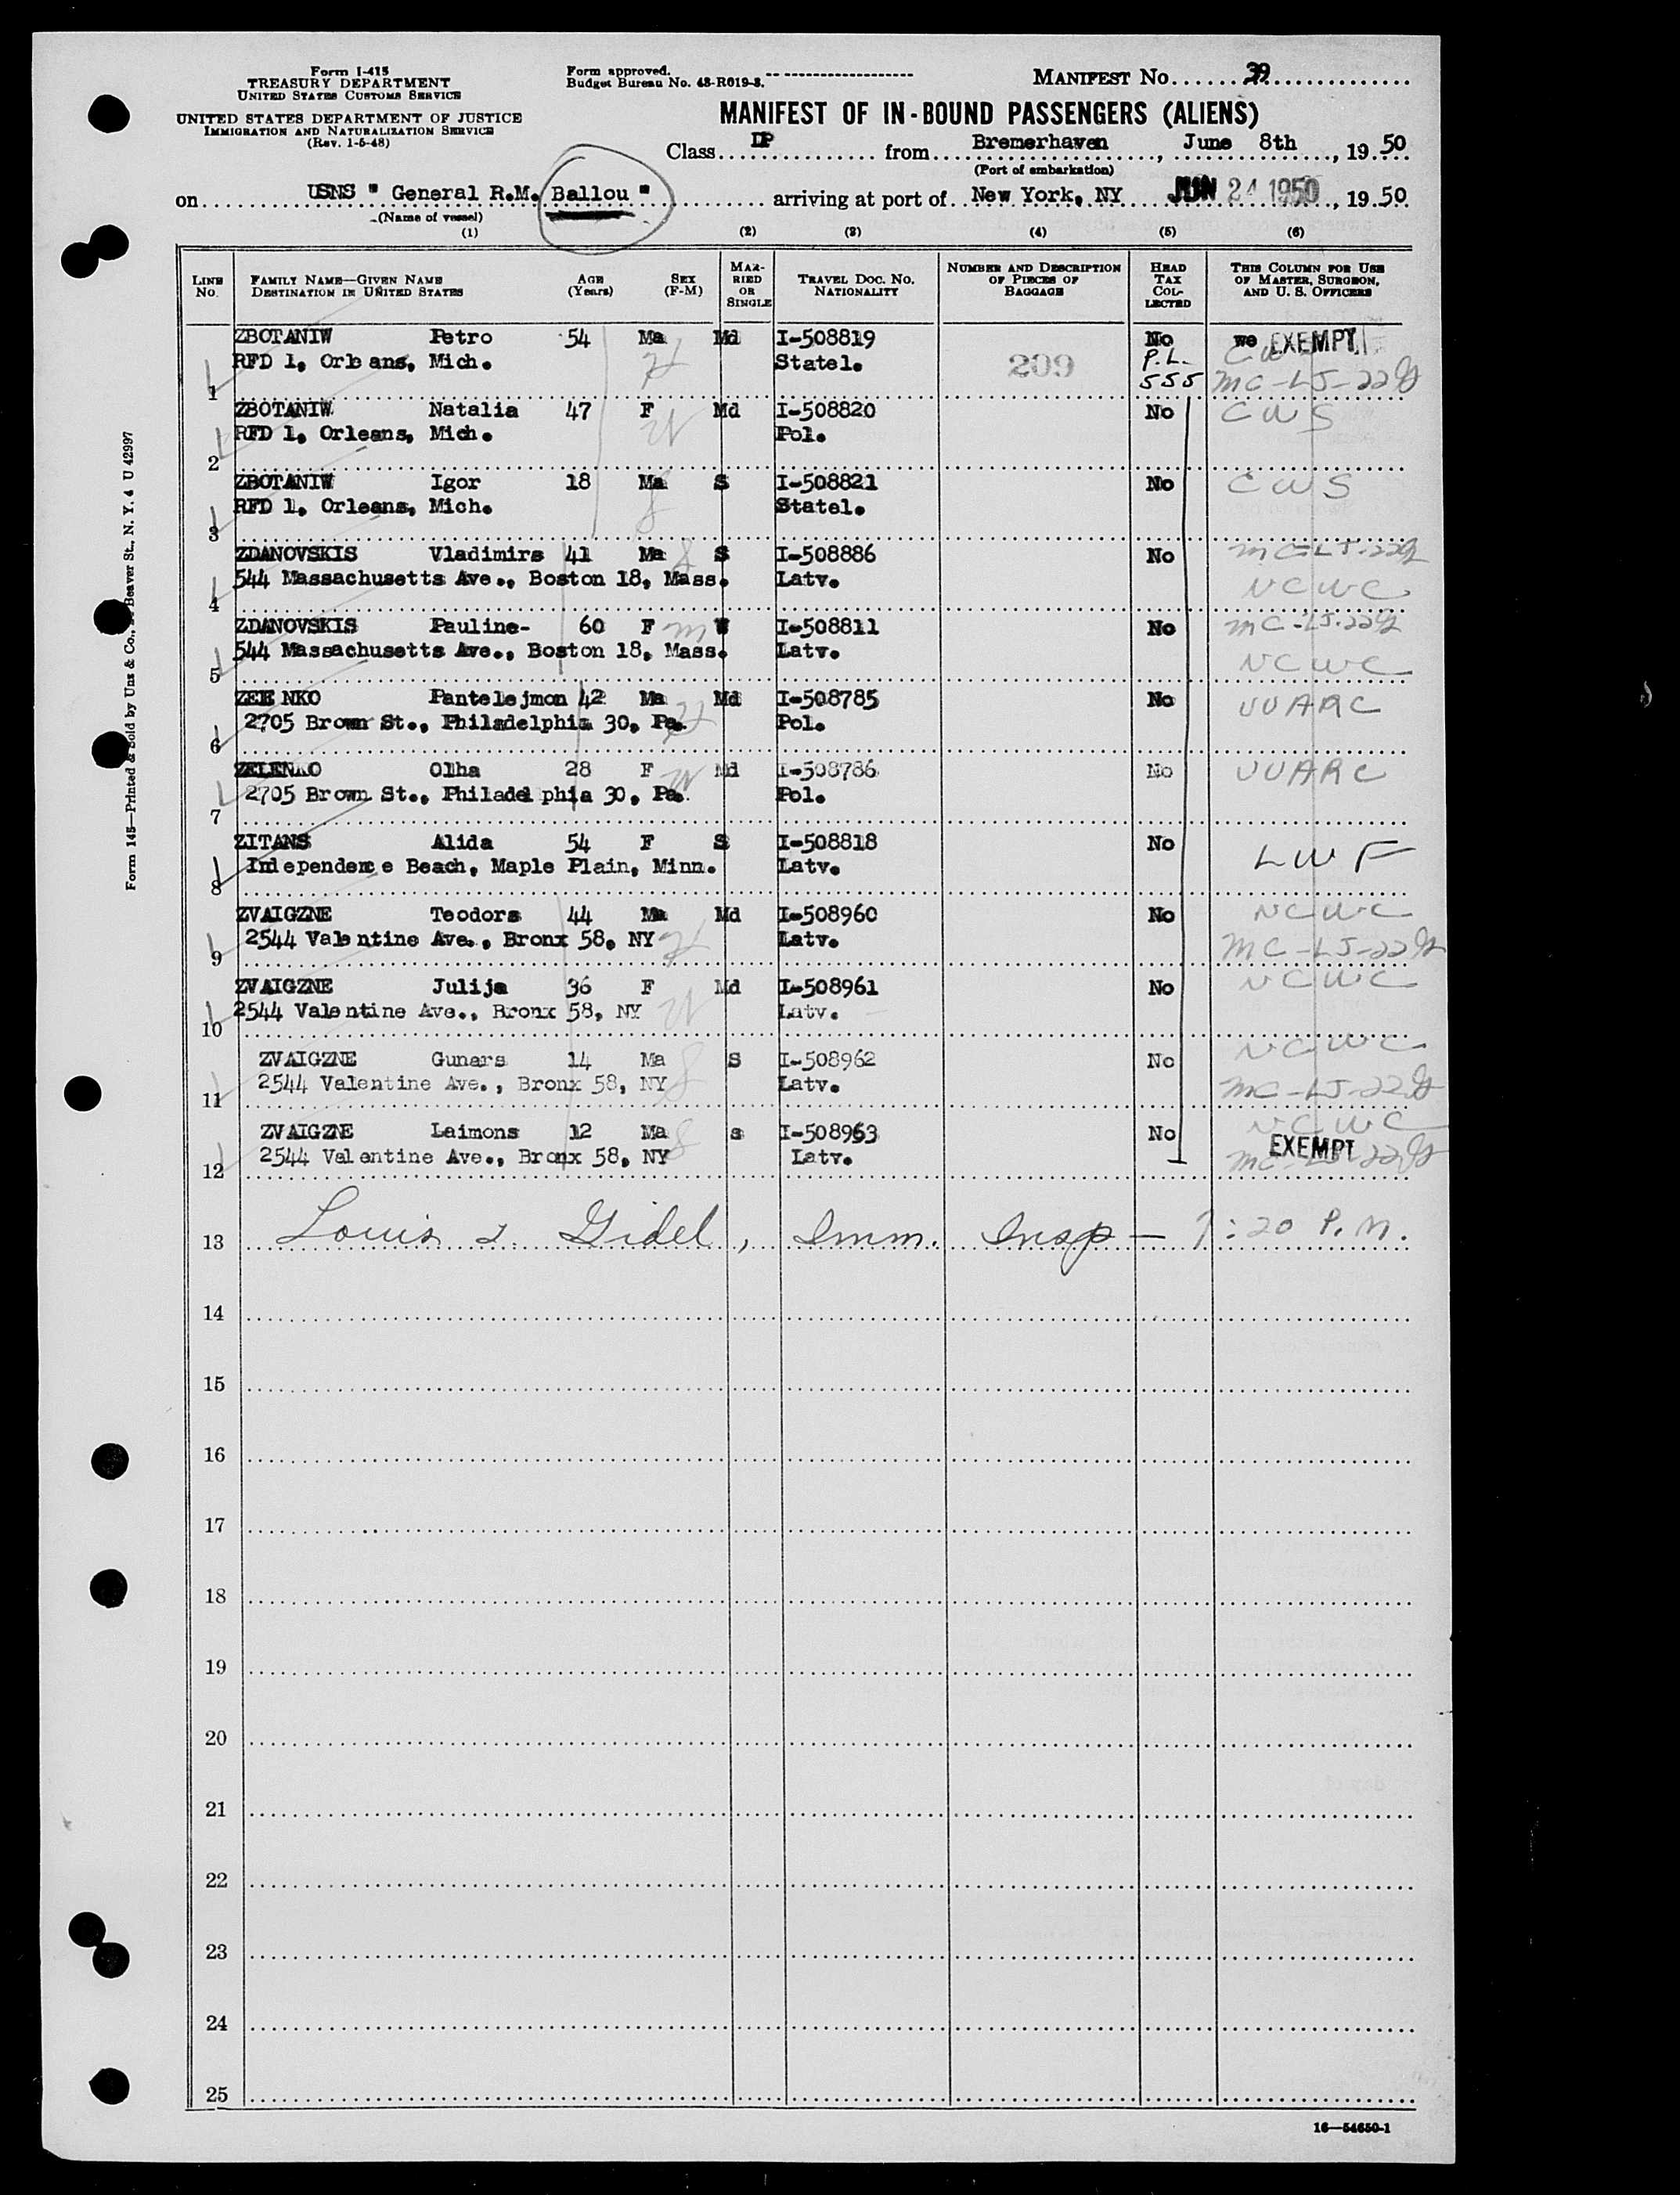 Form I-415
TREASURY DEPARTMENT
UNITED STATES CUSTOMS SERVICE
UNITED STATES DEPARTMENT OF JUSTICE
IMMIGRATION AND NATURALIZATION SERVICE
(Rev. 1-5-48)
Form approved.
Budget Bureau No. 43-R019-3.
MANIFEST NO. 39
MANIFEST OF IN-BOUND PASSENGERS (ALIENS)
Class DP from Bremerhaven, June 8th, 1950
(Port of embarkation)
on USNS " General R.M. Ballou " arriving at port of New York, NY JUN 24 1950, 1950
(Name of vessel)
(1) (2) (3) (4) (5) (6)
LINE NO. FAMILY NAME—GIVEN NAME DESTINATION IN UNITED STATES AGE (Years) SEX (F-M) MARRIED OR SINGLE TRAVEL DOC. NO. NATIONALITY NUMBER AND DESCRIPTION OF PIECES OF BAGGAGE HEAD TAX COLLECTED THIS COLUMN FOR USE OF MASTER, SURGEON, AND U. S. OFFICERS
ZBOTANIW Petro 54 Ma Md I-508819 No EXEMPT
RFD 1, Orleans, Mich. Statel. 209 P.L. CWS
1 555 MC-LJ-22
ZBOTANIW Natalia 47 F Md I-508820 No CWS
RFD 1, Orleans, Mich. Pol.
2
ZBOTANIW Igor 18 Ma S I-508821 No CWS
RFD 1, Orleans, Mich. Statel.
3
ZDANOVSKIS Vladimirs 41 Ma S I-508886 No MC-LJ-22
544 Massachusetts Ave., Boston 18, Mass. Latv. NCWC
4
ZDANOVSKIS Pauline- 60 F W I-508811 No MC-LJ-22
544 Massachusetts Ave., Boston 18, Mass. Latv. NCWC
5
ZELENKO Pantelejmon 42 Ma Md I-508785 No UUARC
2705 Brown St., Philadelphia 30, Pa. Pol.
6
ZELENKO Olha 28 F Md I-508786 No UUARC
2705 Brown St., Philadelphia 30, Pa. Pol.
7
ZITANS Alida 54 F S I-508818 No LWF
Independence Beach, Maple Plain, Minn. Latv.
8
ZVAIGZNE Teodors 44 Ma Md I-508960 No NCWC
2544 Valentine Ave., Bronx 58, NY Latv. MC-LJ-22
9
ZVAIGZNE Julija 36 F Md I-508961 No NCWC
2544 Valentine Ave., Bronx 58, NY Latv.
10
ZVAIGZNE Gunars 14 Ma S I-508962 No NCWC
2544 Valentine Ave., Bronx 58, NY Latv. MC-LJ-22
11
ZVAIGZNE Laimons 12 Ma s I-508963 No NCWC
2544 Valentine Ave., Bronx 58, NY Latv. EXEMPT MC-LJ-22
12
13 Louis Gidel, Imm. Insp — :20 P.M.
14
15
16
17
18
19
20
21
22
23
24
25
16—54650-1
Form 145—Printed & Sold by Unz & Co., Beaver St., N. Y. 4 U 42997